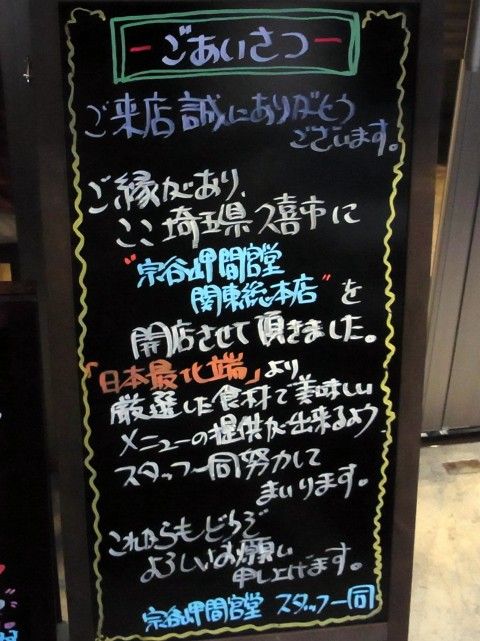 ー ごあいさつ ー
ご来店誠にありがとう
ございます。
ご縁があり、
ここ埼玉県久喜市に
"宗谷岬間宮堂
関東総本店"を
開店させて頂きました。
「日本最北端」より
厳選した食材で美味しい
メニューの提供が出来るよう
スタッフ一同努力して
まいります。
これからもどうぞ
よろしくお願い
申し上げます。
宗谷岬間宮堂 スタッフ一同